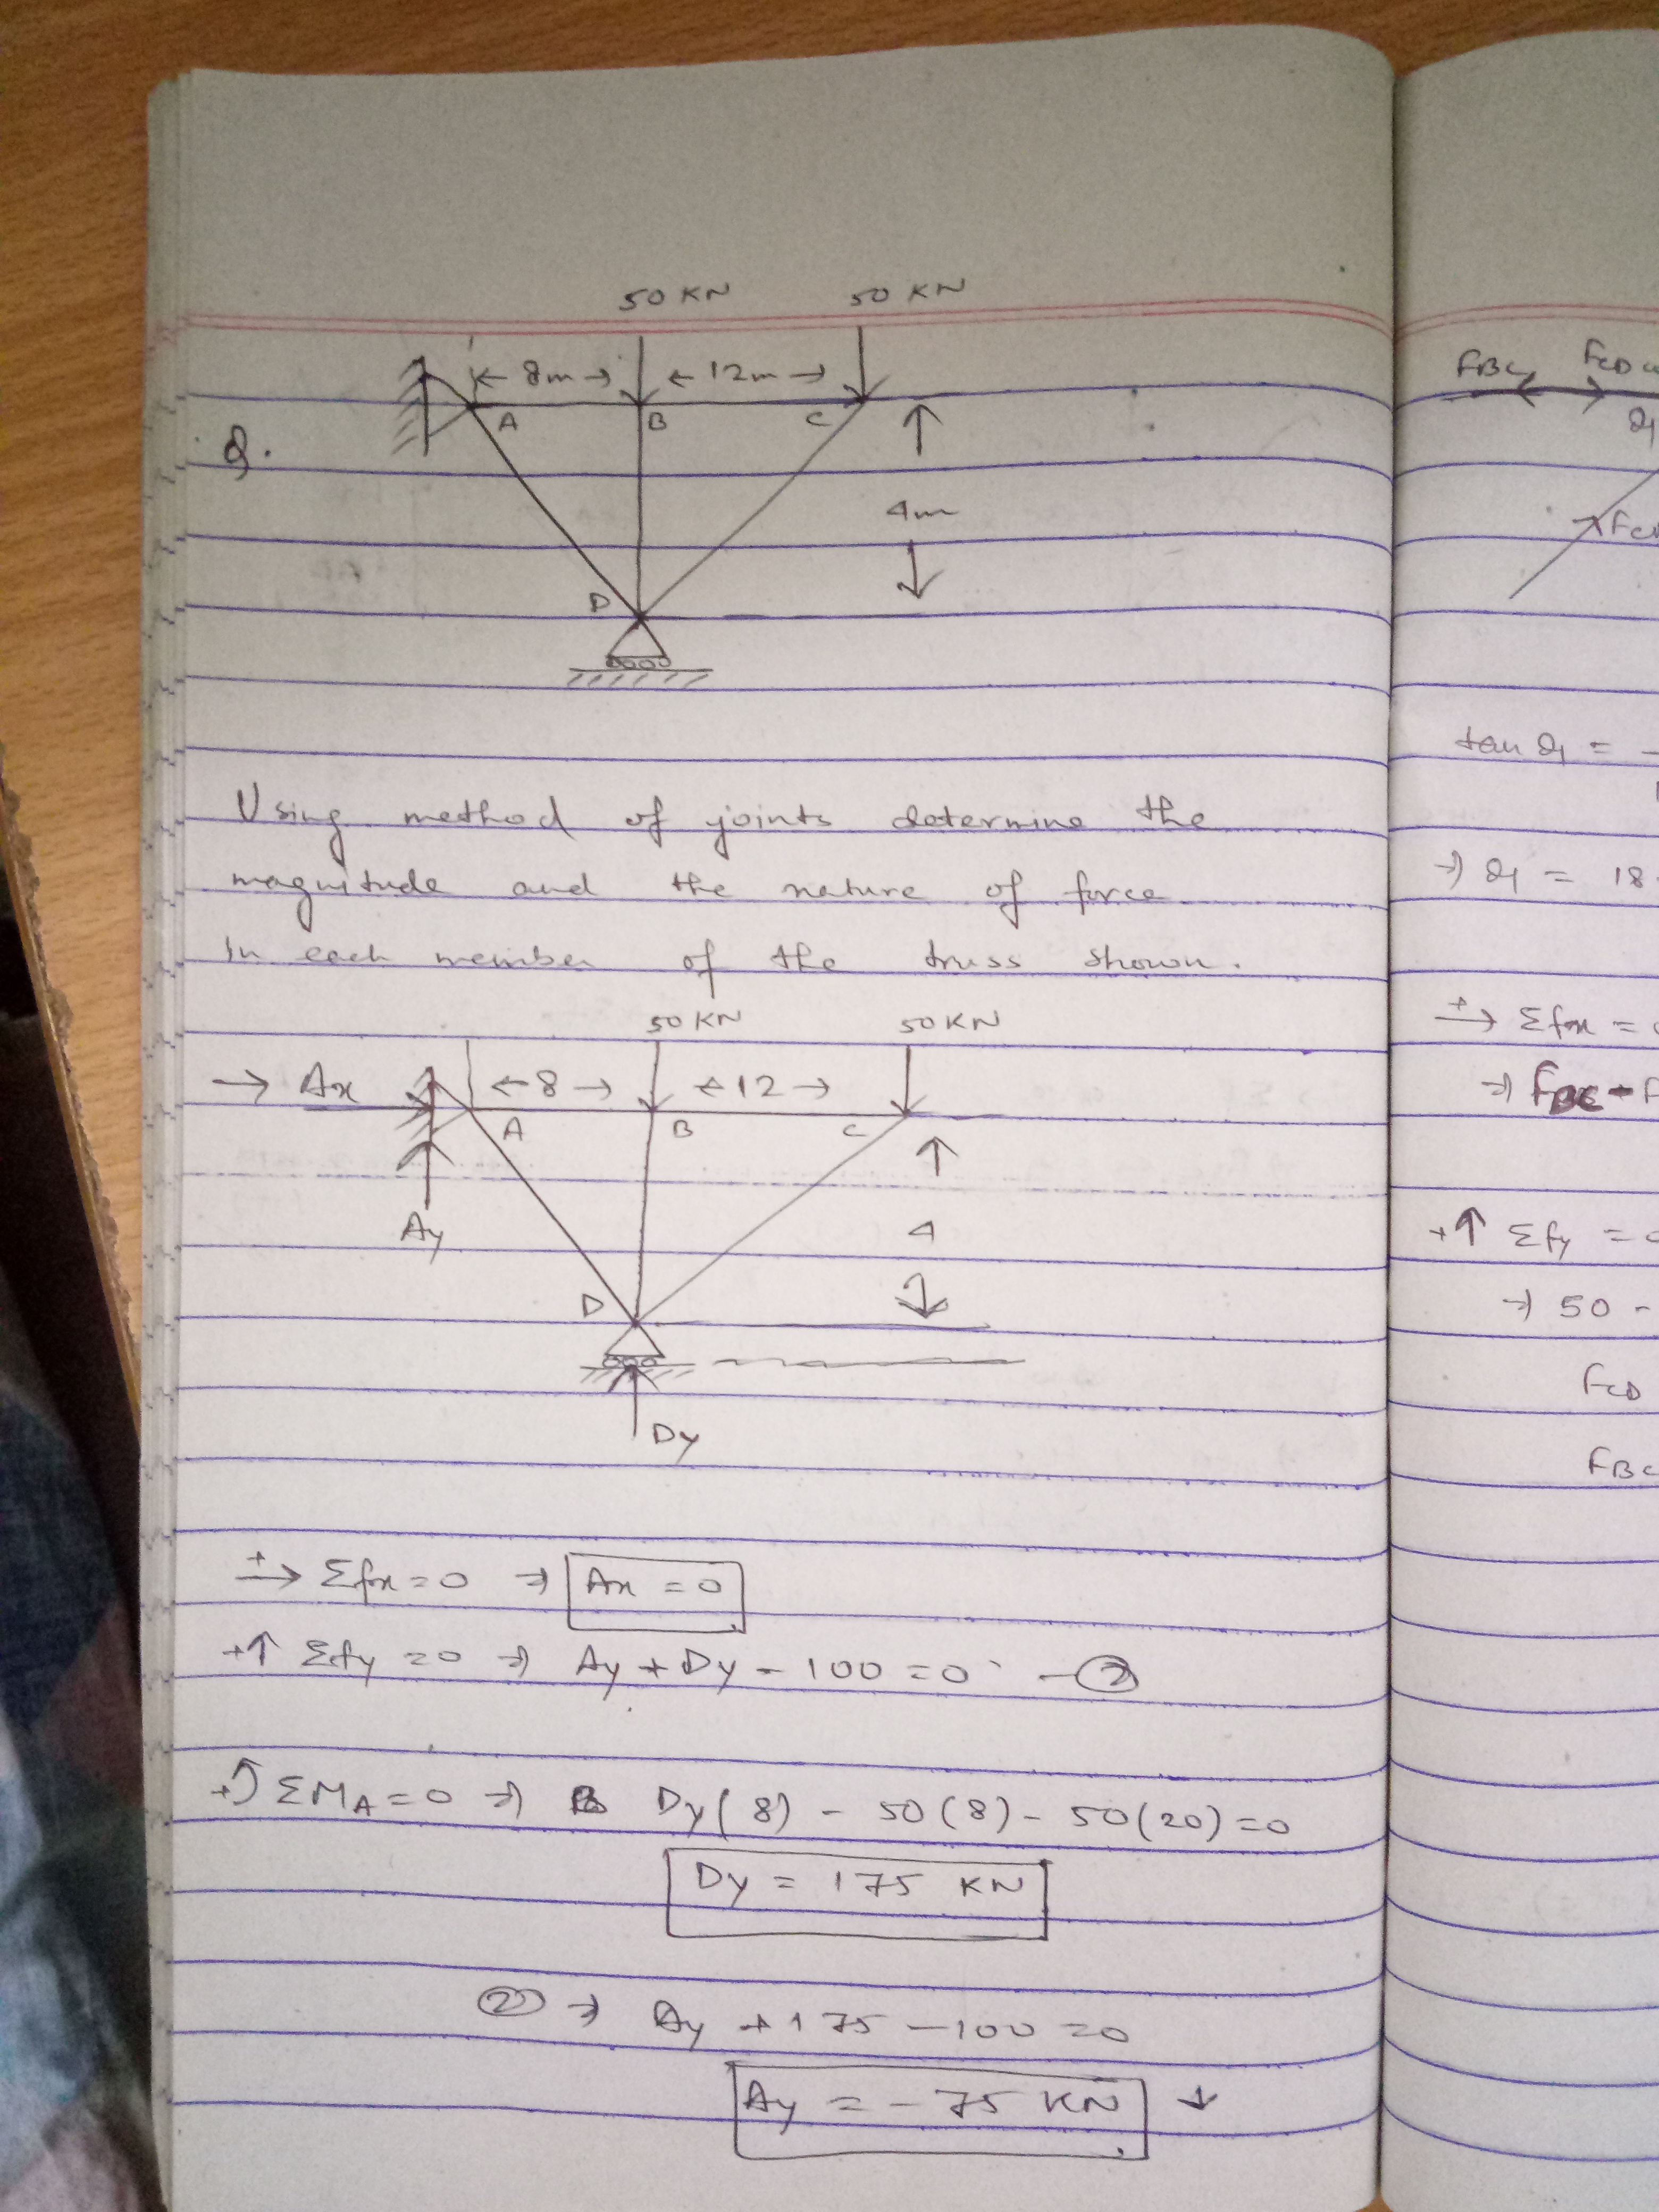 50 KN 50 KN
← 8m → ← 12m →
A B C
Q.
4m
D
Using method of joints determine the
magnitude and the nature of force
in each member of the truss shown.
50 KN 50 KN
→ Ax ← 8 → ← 12 →
A B C
Ay 4
D
Dy
+→ Σfx = 0 ⇒ Ax = 0
+↑ Σfy = 0 ⇒ Ay + Dy - 100 = 0 - ②
+↺ ΣMA = 0 ⇒ Dy(8) - 50(8) - 50(20) = 0
Dy = 175 KN
② ⇒ Ay + 175 - 100 = 0
Ay = - 75 KN ↓
FBC FCD
θ1
tan θ1 =
⇒ θ1 = 18
+→ Σfx =
⇒ FBC -
+↑ Σfy =
⇒ 50 -
FCD
FBC